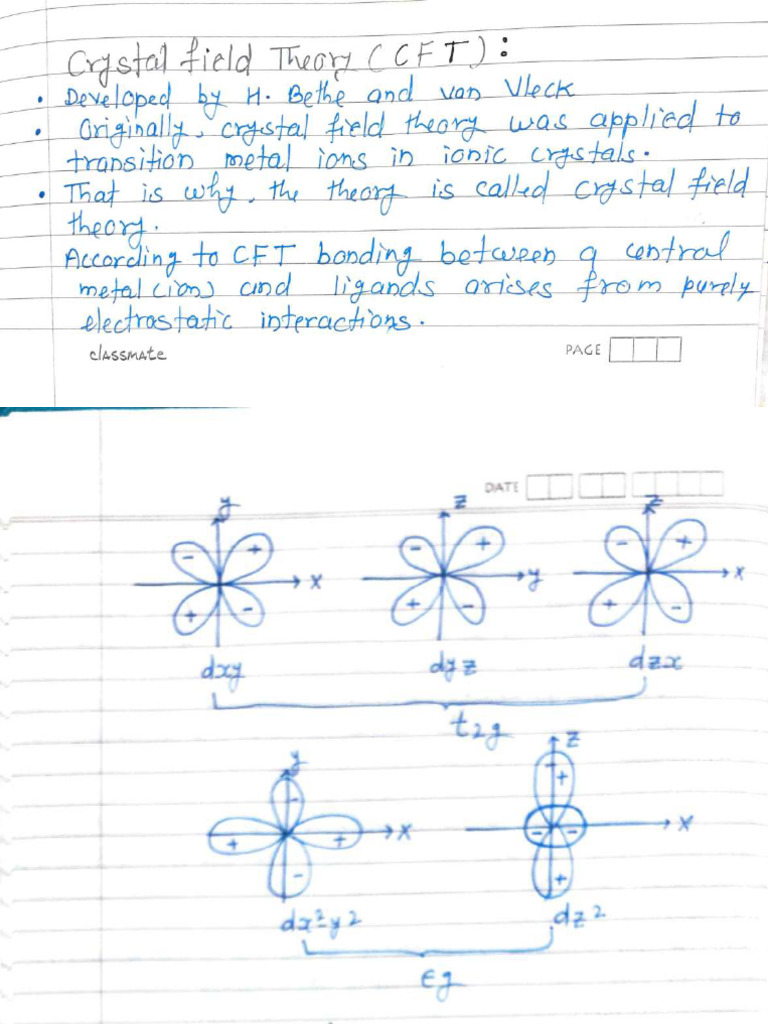 Crystal field Theory (CFT):
• Developed by H. Bethe and van Vleck
• Originally, crystal field theory was applied to
transition metal ions in ionic crystals.
• That is why, the theory is called crystal field
theory.
According to CFT bonding between a central
metal(ion) and ligands arises from purely
electrostatic interactions.
classmate PAGE
DATE
y z z
- + - + - +
x y x
+ - + - + -
dxy dyz dzx
t2g
y z
- +
+ + x - - x
- +
dx²-y² dz²
eg